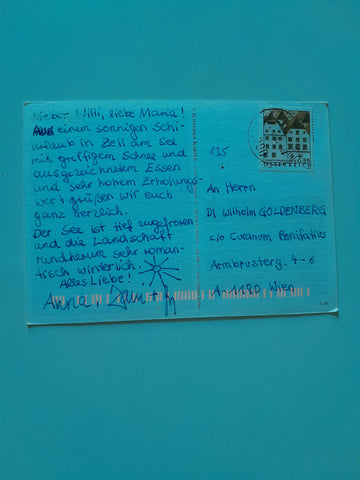 Lieber Willi, liebe Maria!
Aus einem sonnigen Schi-
urlaub in Zell am See
mit griffigem Schnee und
ausgezeichnetem Essen
und sehr hohem Erholungs-
wert grüßen wir euch
ganz herzlich.
Der See ist tief zugefroren
und die Landschaft
rundherum sehr roman-
tisch winterlich.
Alles Liebe!
Anna,
135
ÖSTERREICH
An Herrn
DI Wilhelm GOLDENBERG
c/o Curanum Bonifatius
Armbrusterg. 4-6
A-1190 Wien